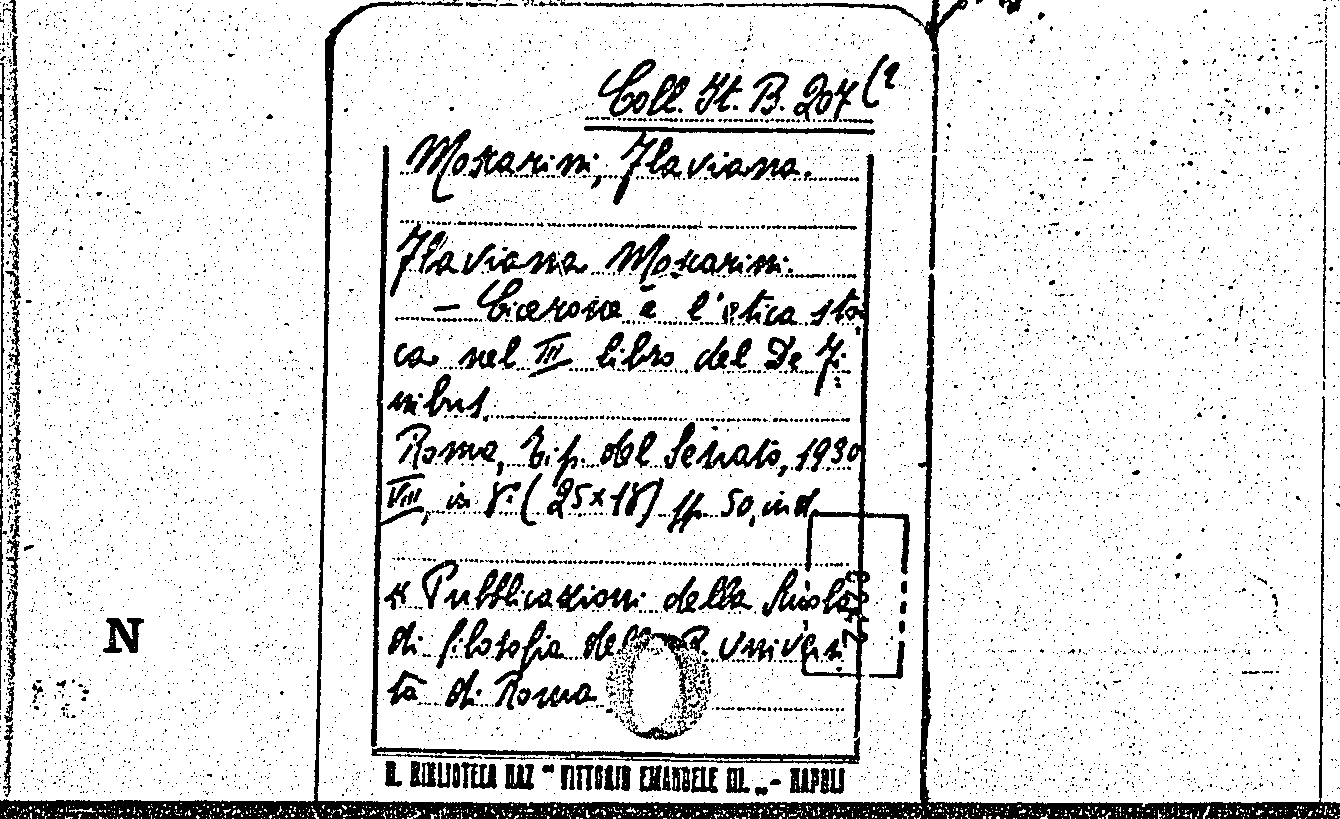 Coll. It. B. 207 (2
Moscarini, Flaviana.
Flaviana Moscarini.
— Cicerone e l'etica stoi
ca nel III libro del De Fi
nibus.
Roma, Tip. del Senato, 1930
VIII, in 8.° (25×18) pp. 50, ind.
« Pubblicazioni della Scuola
di filosofia della R. Universi
tà di Roma
N
R. BIBLIOTECA NAZ "VITTORIO EMANUELE III.„ - NAPOLI